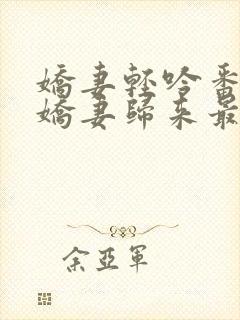 嬌妻輕吟番
嬌妻歸來最
余亞軍